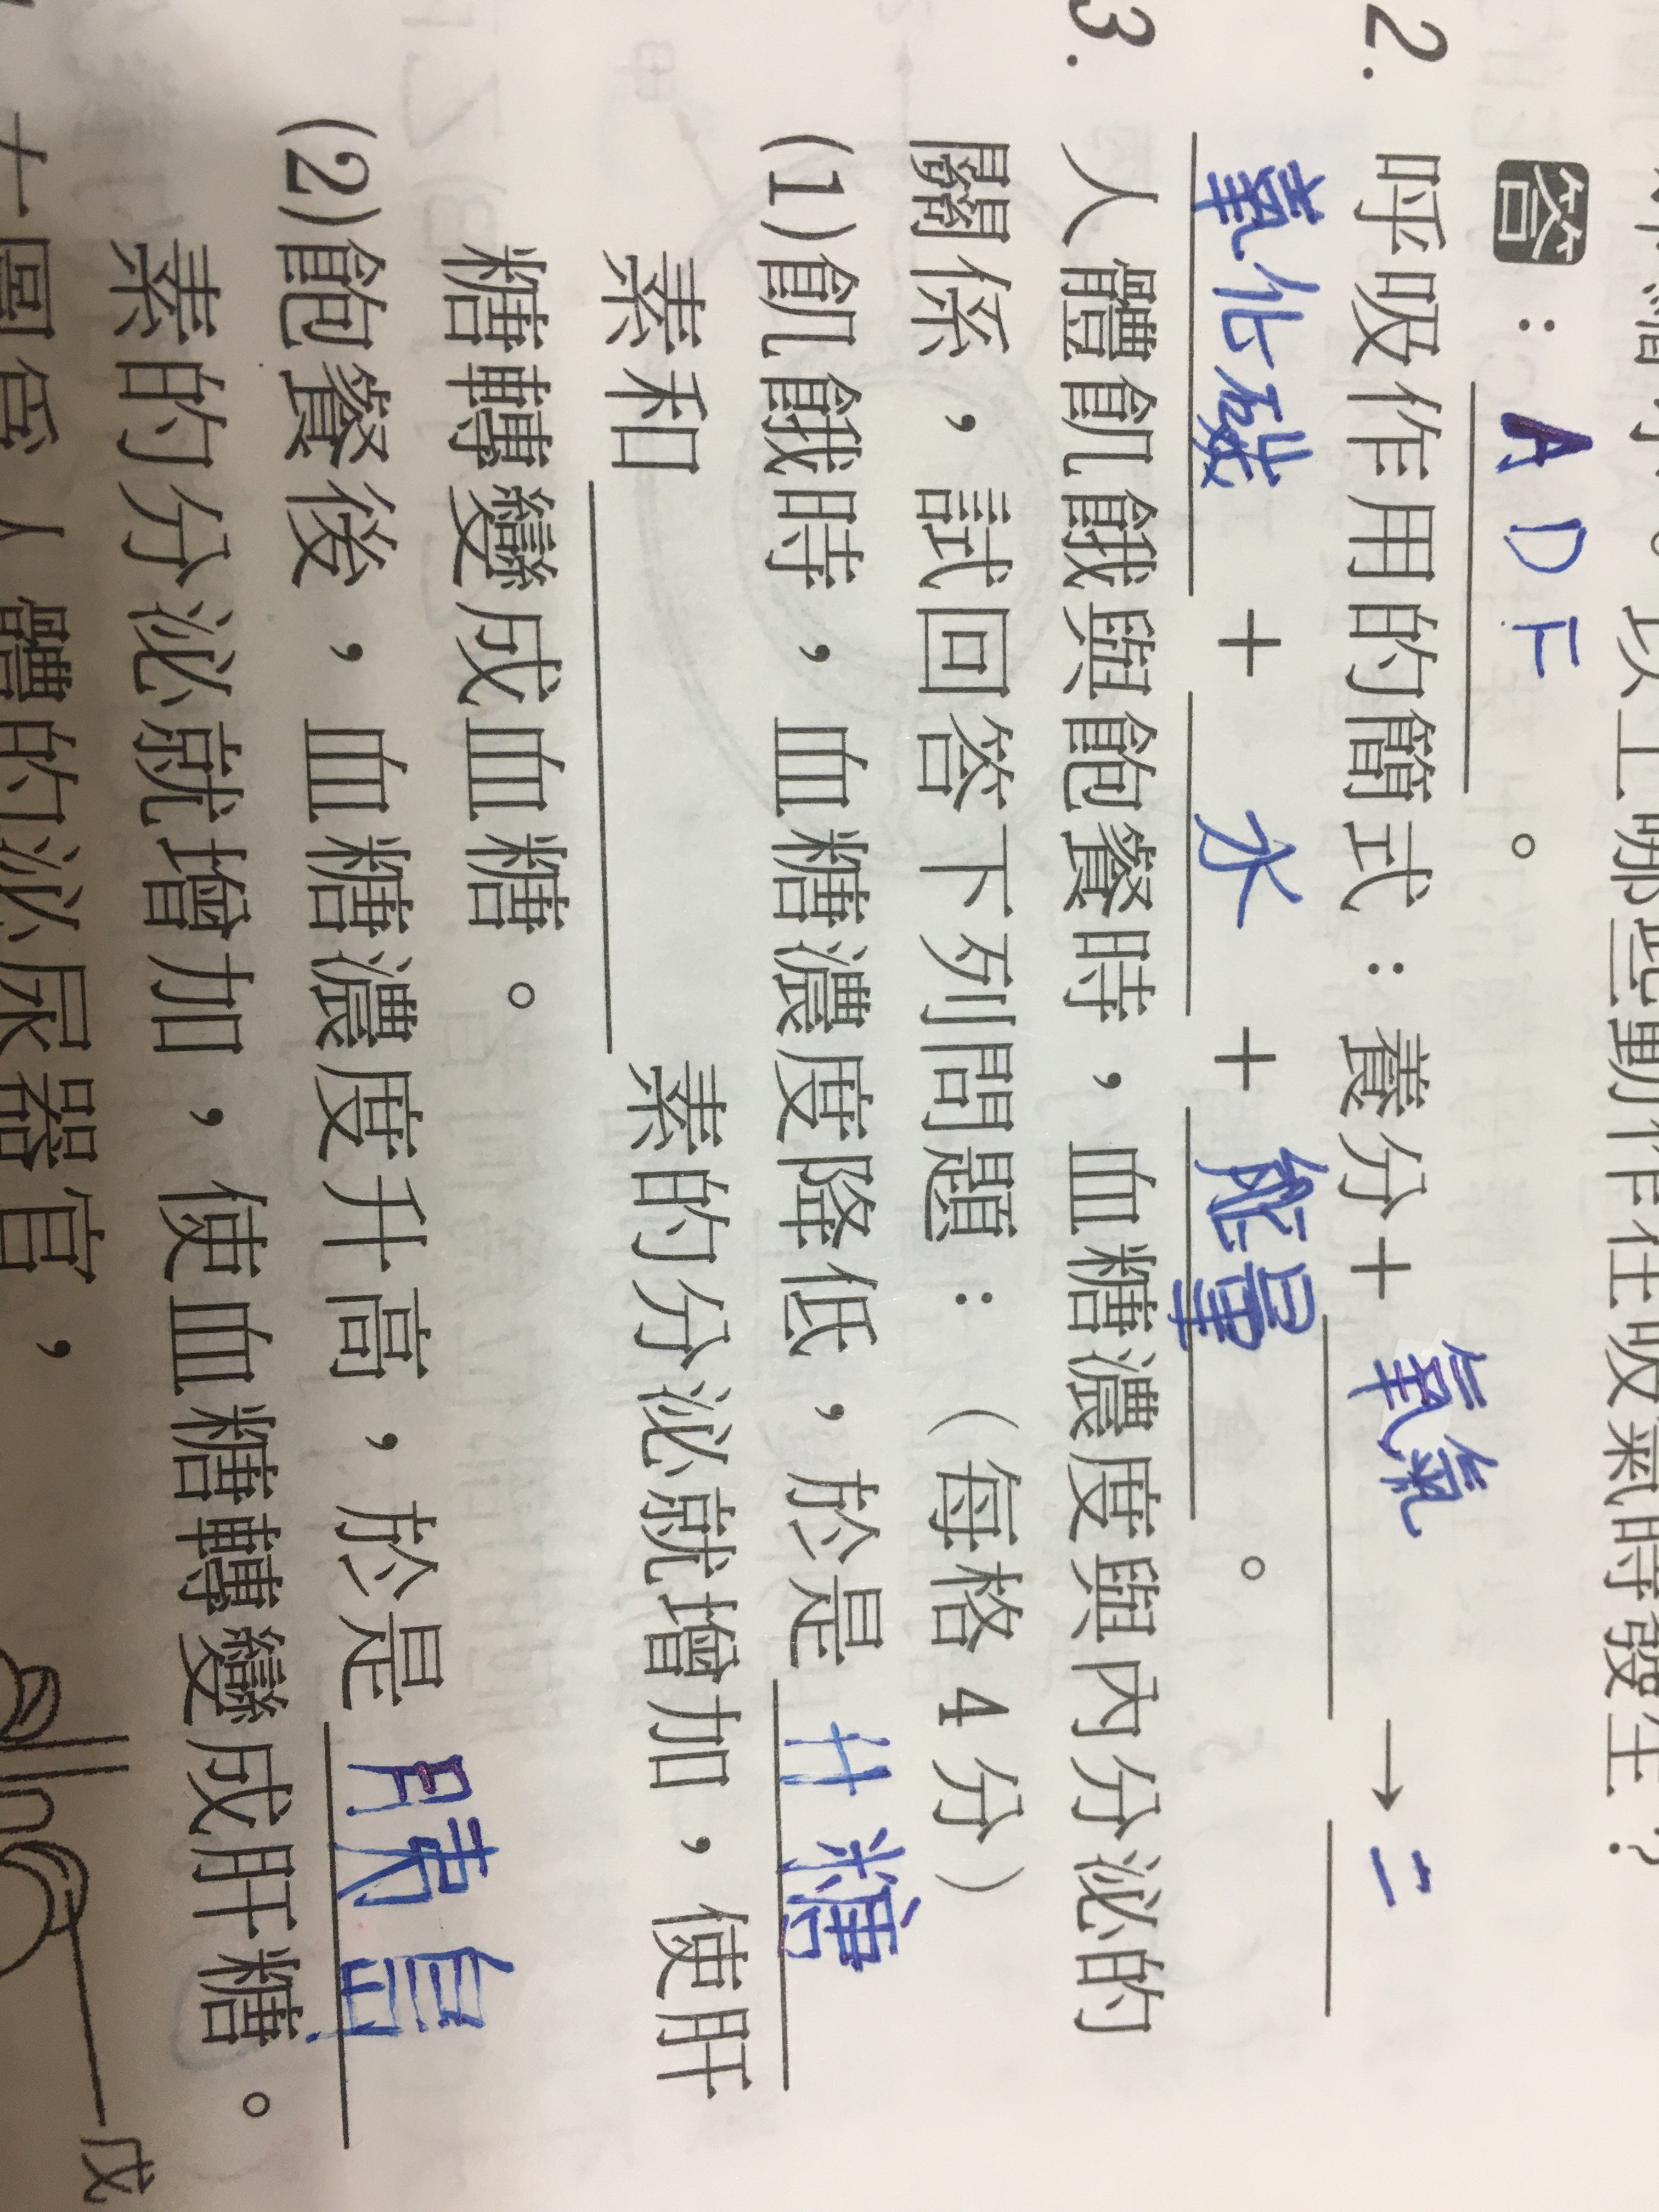 以上哪些動作在吸氣時發生？
答：A D F 。
2. 呼吸作用的簡式：養分＋ 氧氣 → 二
氧化碳 ＋ 水 ＋ 能量 。
3. 人體飢餓與飽餐時，血糖濃度與內分泌的
關係，試回答下列問題：（每格 4 分）
(1)飢餓時，血糖濃度降低，於是 升糖
素和 素的分泌就增加，使肝
糖轉變成血糖。
(2)飽餐後，血糖濃度升高，於是 胰島
素的分泌就增加，使血糖轉變成肝糖。
人體的泌尿器官，
戊